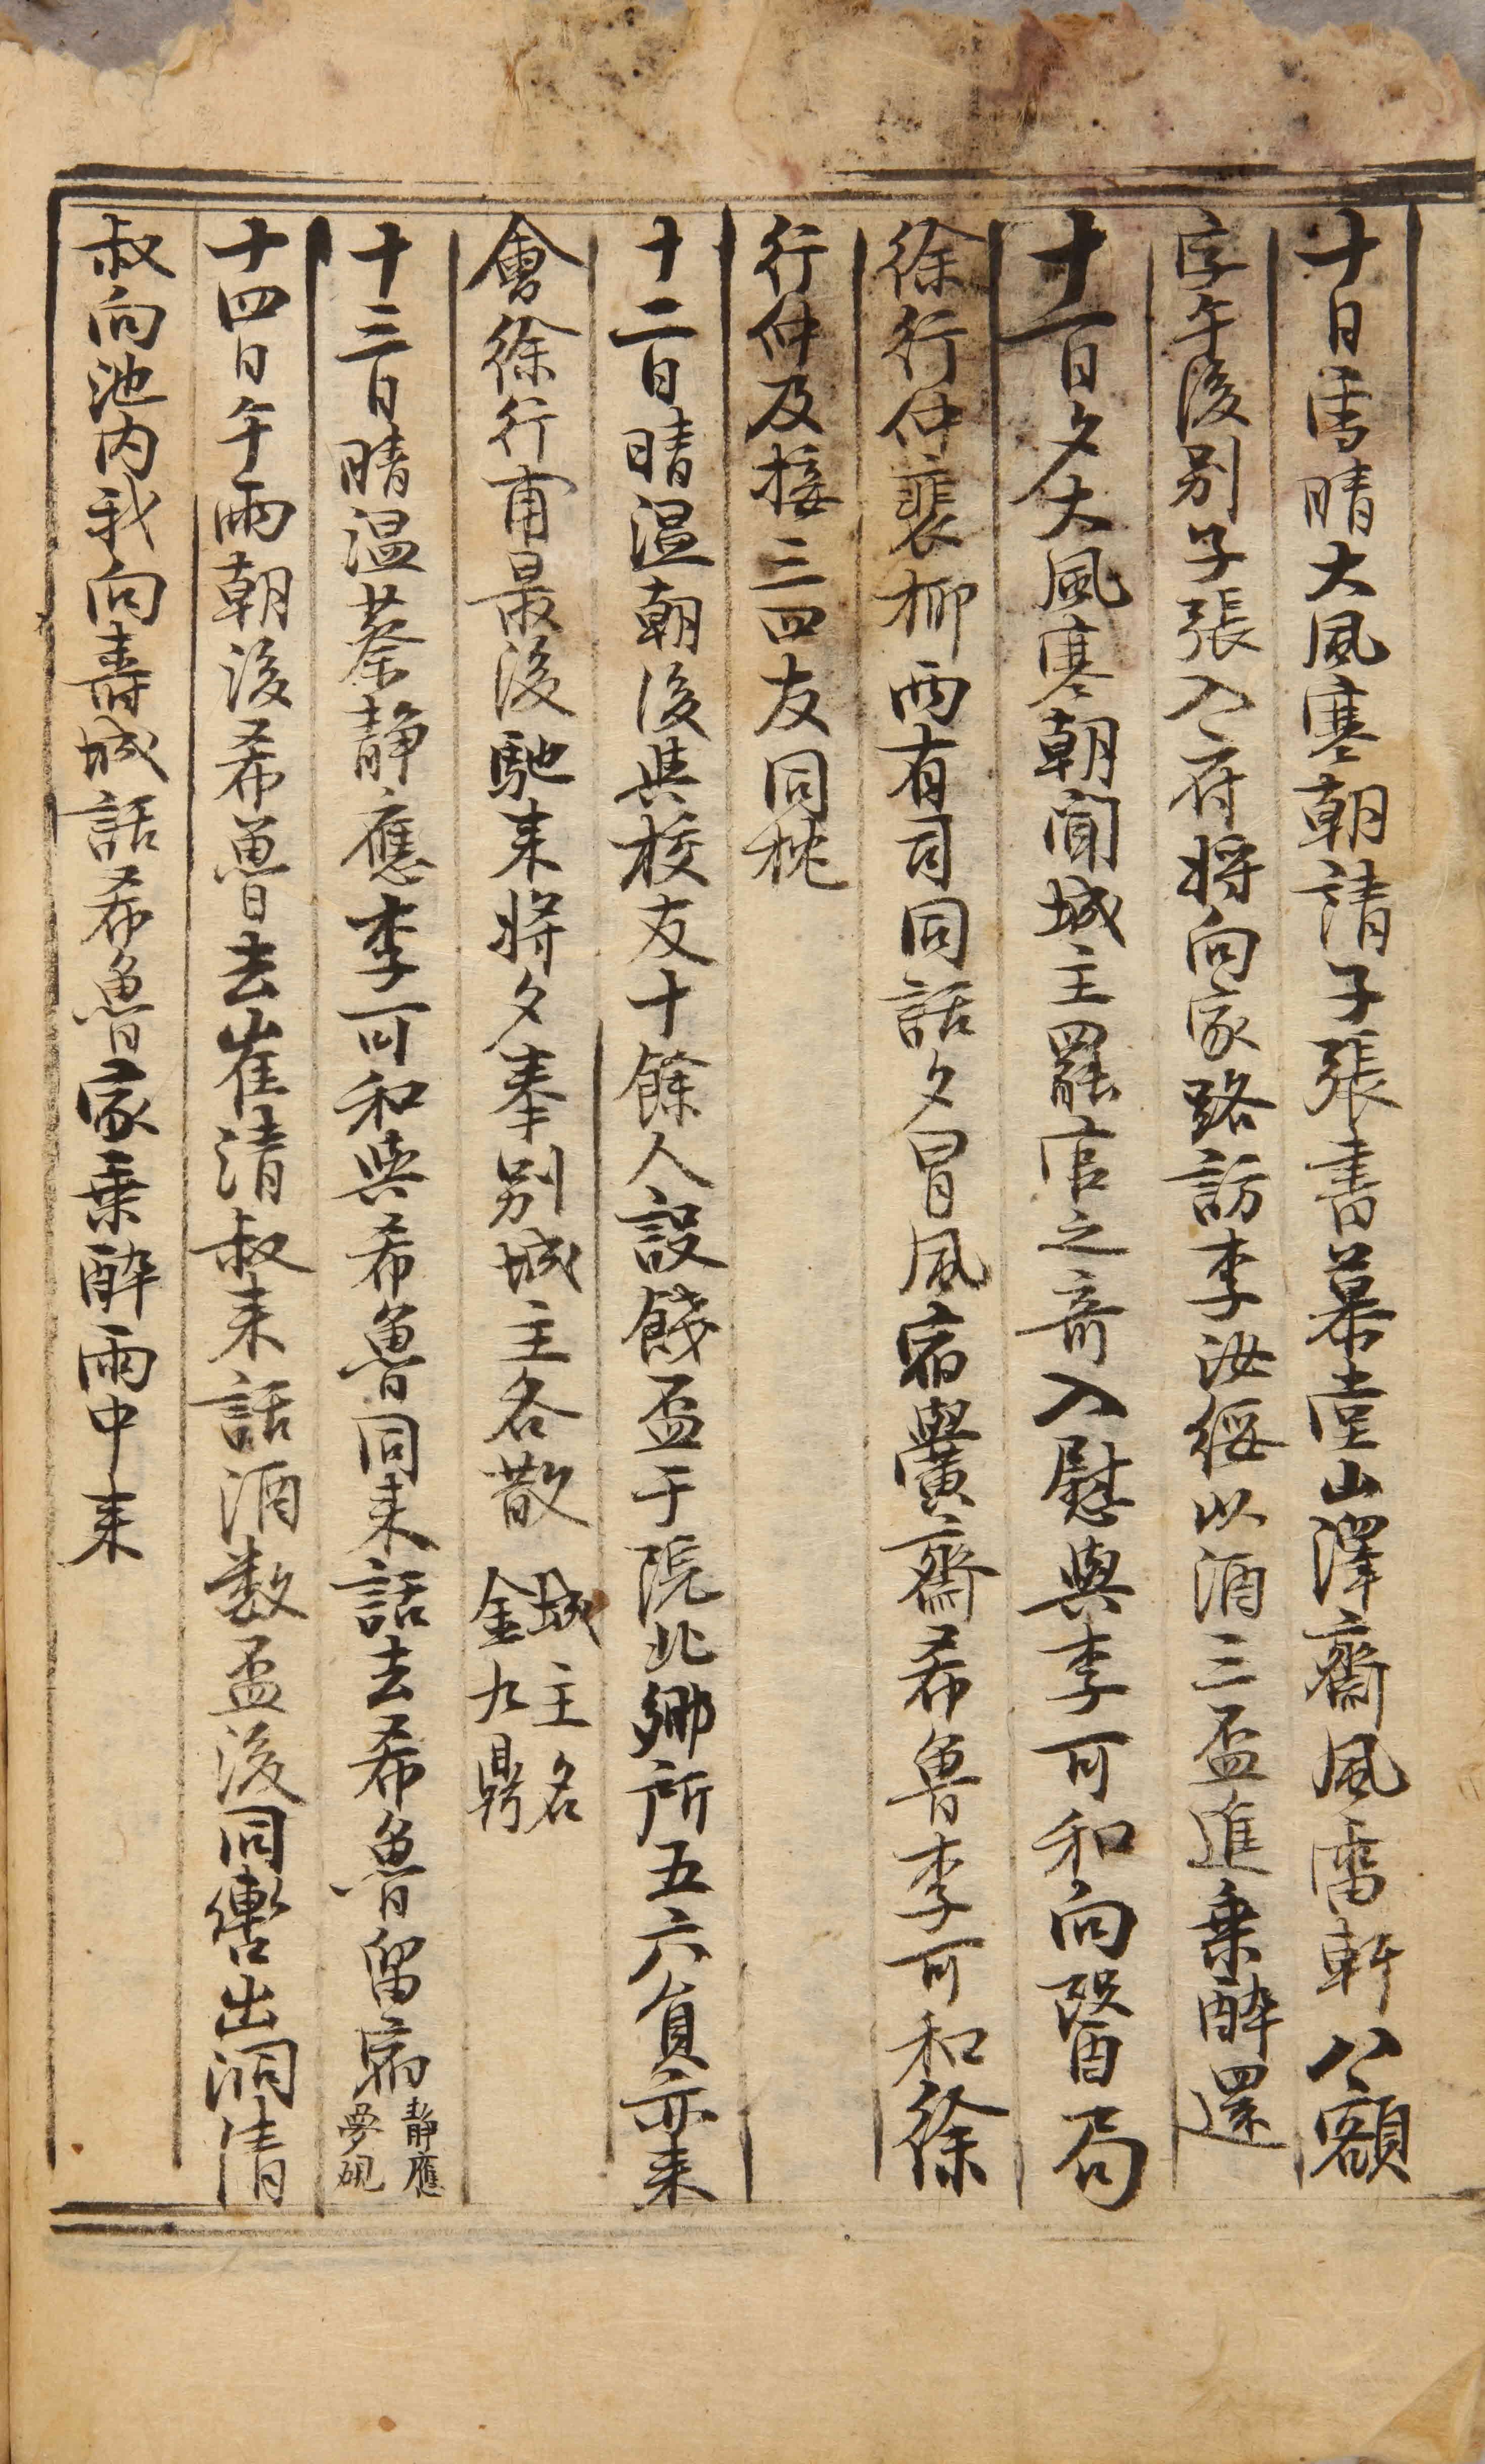 十日雪晴大風寒朝請子張書慕堂山澤齋風雷軒八額
字午後別子張入府將向家路訪李汝綏以酒三盃進乗酔還
十一日夕大風寒朝聞城主罷官之奇入慰與李可和向醫局
徐行仲裴柳兩有司同話夕冒風宿黌齋希魯李可和徐
行仲及接三四友同枕
十二日晴温朝後與校友十餘人設餞盃于院北鄉所五六員亦来
會徐行甫最後馳来將夕奉別城主各散 城主名金九鼎
十三日晴温蔡靜應李可和與希魯同来話去希魯留宿 靜應夢硯
十四日午雨朝後希魯去崔清叔来話酒数盃後同轡出洞清
叔向池内我向壽城話希魯家乗酔雨中来